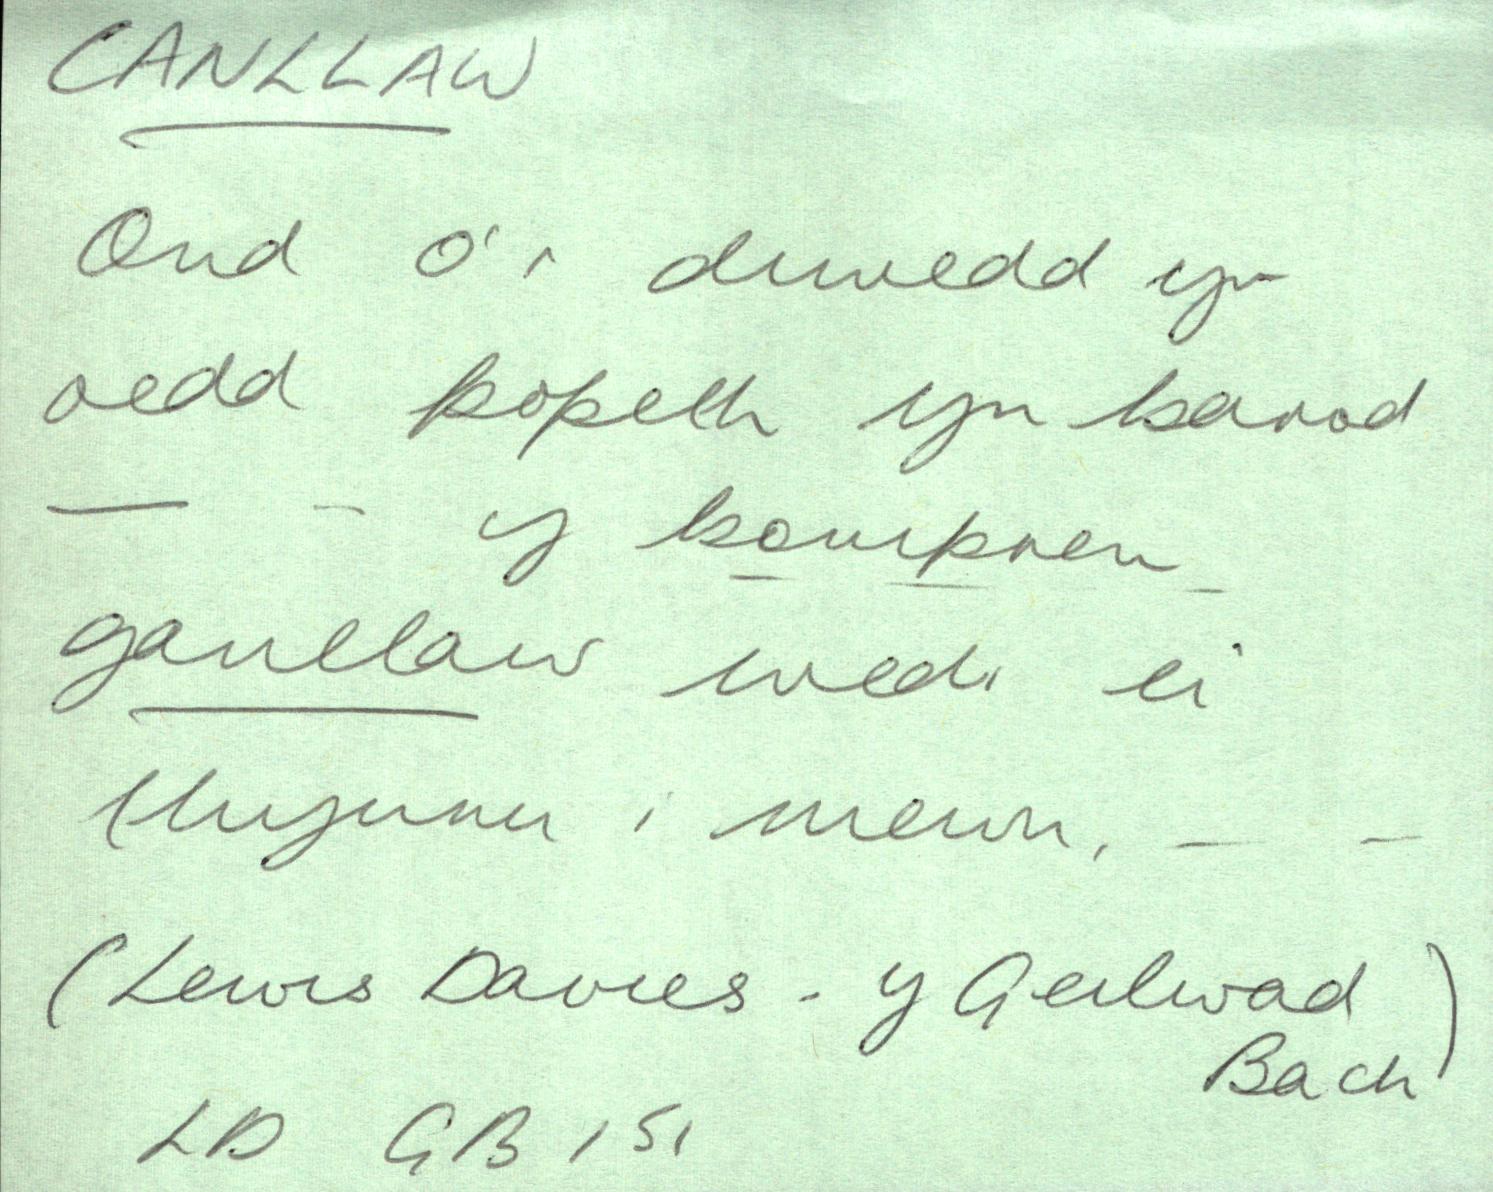 CANLLAW
Ond o'r diwedd yr
oedd popeth yn barod
— - y bompren
ganllaw wedi ei
thynnu i mewn, — -
(Lewis Davies - Y Geilwad
Bach)
LD GB 151